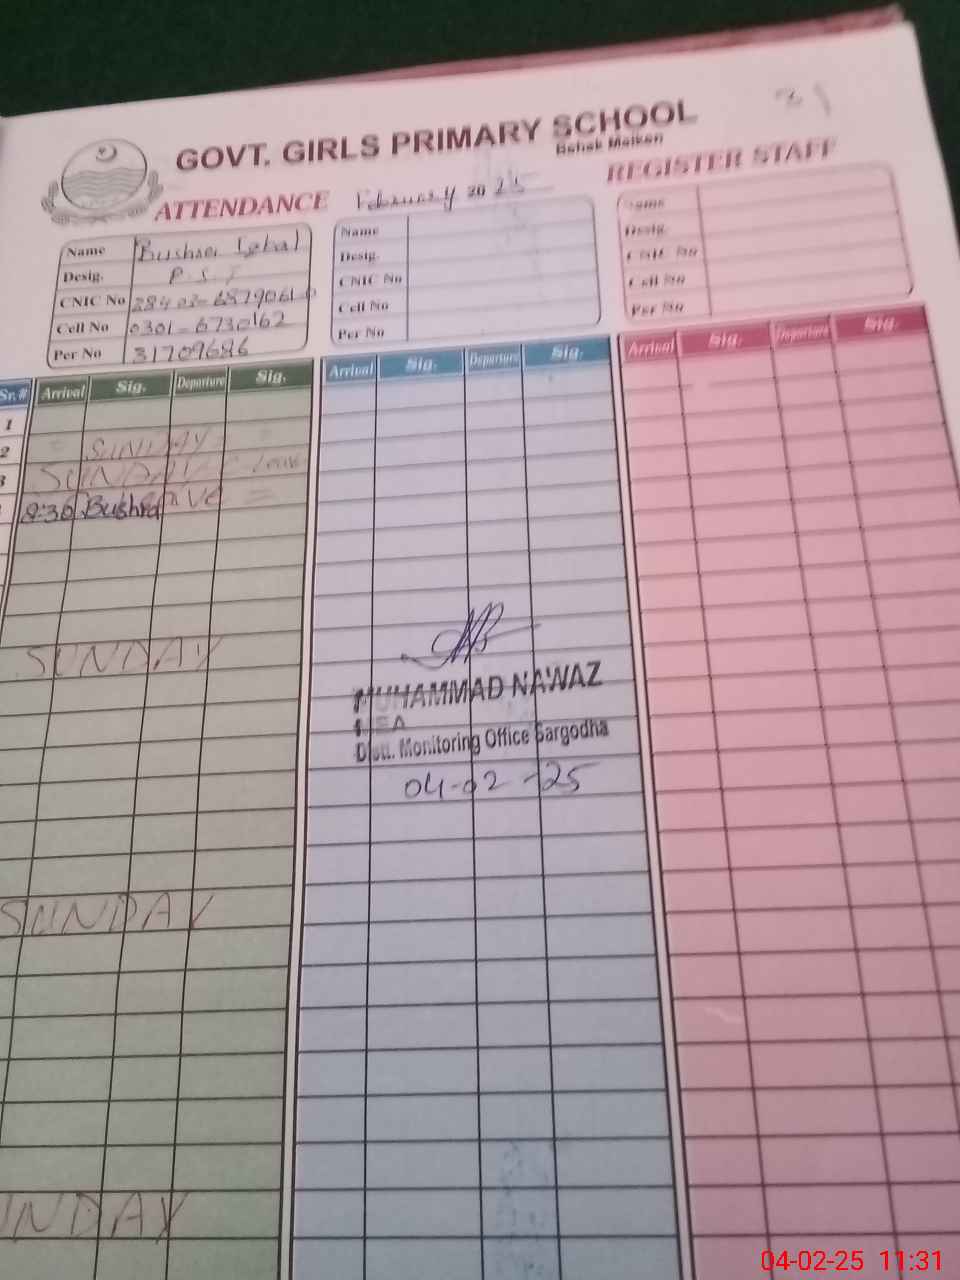 GOVT. GIRLS PRIMARY SCHOOL
ATTENDANCE February 2025 REGISTER STAFF
Name Bushra Iqbal
Desig. P.S.T
CNIC No
Cell No 0301-6730162
Per No 31709686
Name
Desig.
CNIC No
Cell No
Per No
Name
Desig.
CNIC No
Cell No
Per No
Sr.# Arrival Sig. Departure Sig.
Arrival Sig. Departure Sig.
Arrival Sig. Departure Sig.
1
2 SUNDAY
3 SUNDAY Leave
8:30 Bushra
SUNDAY
MUHAMMAD NAWAZ
MEA
Distt. Monitoring Office Sargodha
04-02-25
SUNDAY
UNDAY
04-02-25 11:31